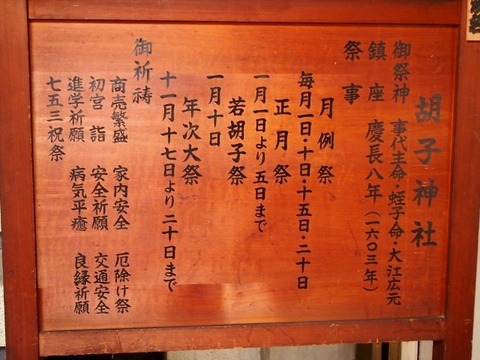 胡子神社
御祭神　事代主命・蛭子命・大江広元
鎮座　慶長八年（一六〇三年）
祭事
月例祭
毎月一日・十日・十五日・二十日
正月祭
一月一日より五日まで
若胡子祭
一月十日
年次大祭
十一月十七日より二十日まで
御祈祷
商売繁盛　家内安全　厄除け祭
初宮詣　安全祈願　交通安全
進学祈願　病気平癒　良縁祈願
七五三祝祭